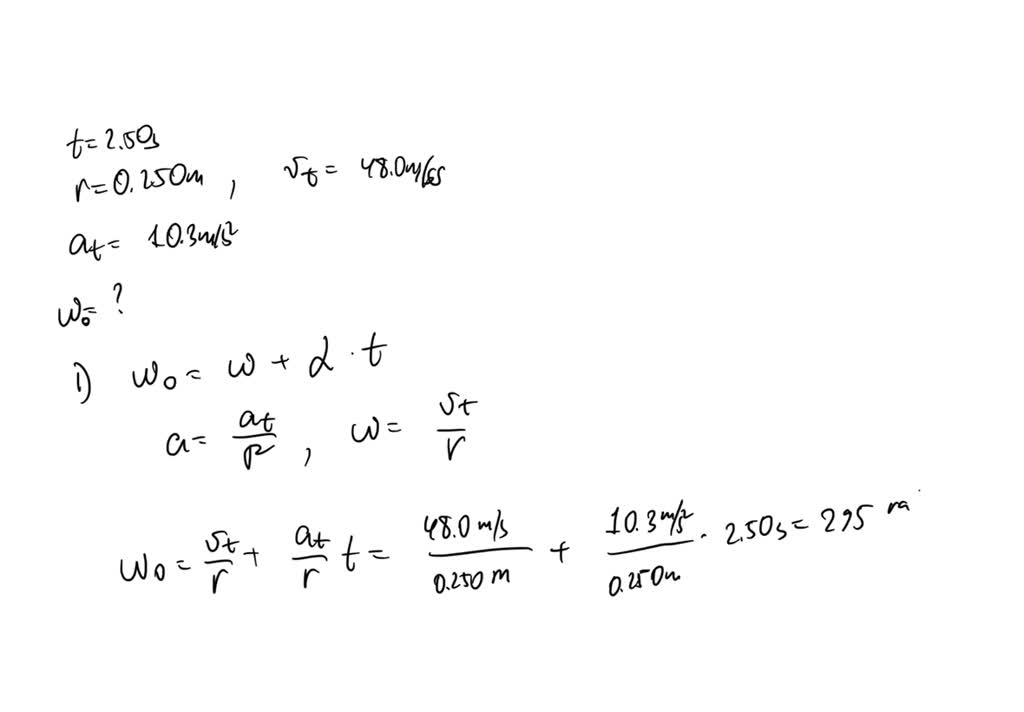 t=2.50s
r=0.250m , v_t= 48.0m/s
a_t= 10.3m/s²
ω₀= ?
1) ω₀= ω + α · t
a= a_t/r , ω= v_t/r
ω₀= v_t/r + a_t/r t= 48.0 m/s / 0.250 m + 10.3 m/s² / 0.250m · 2.50s= 295 ra